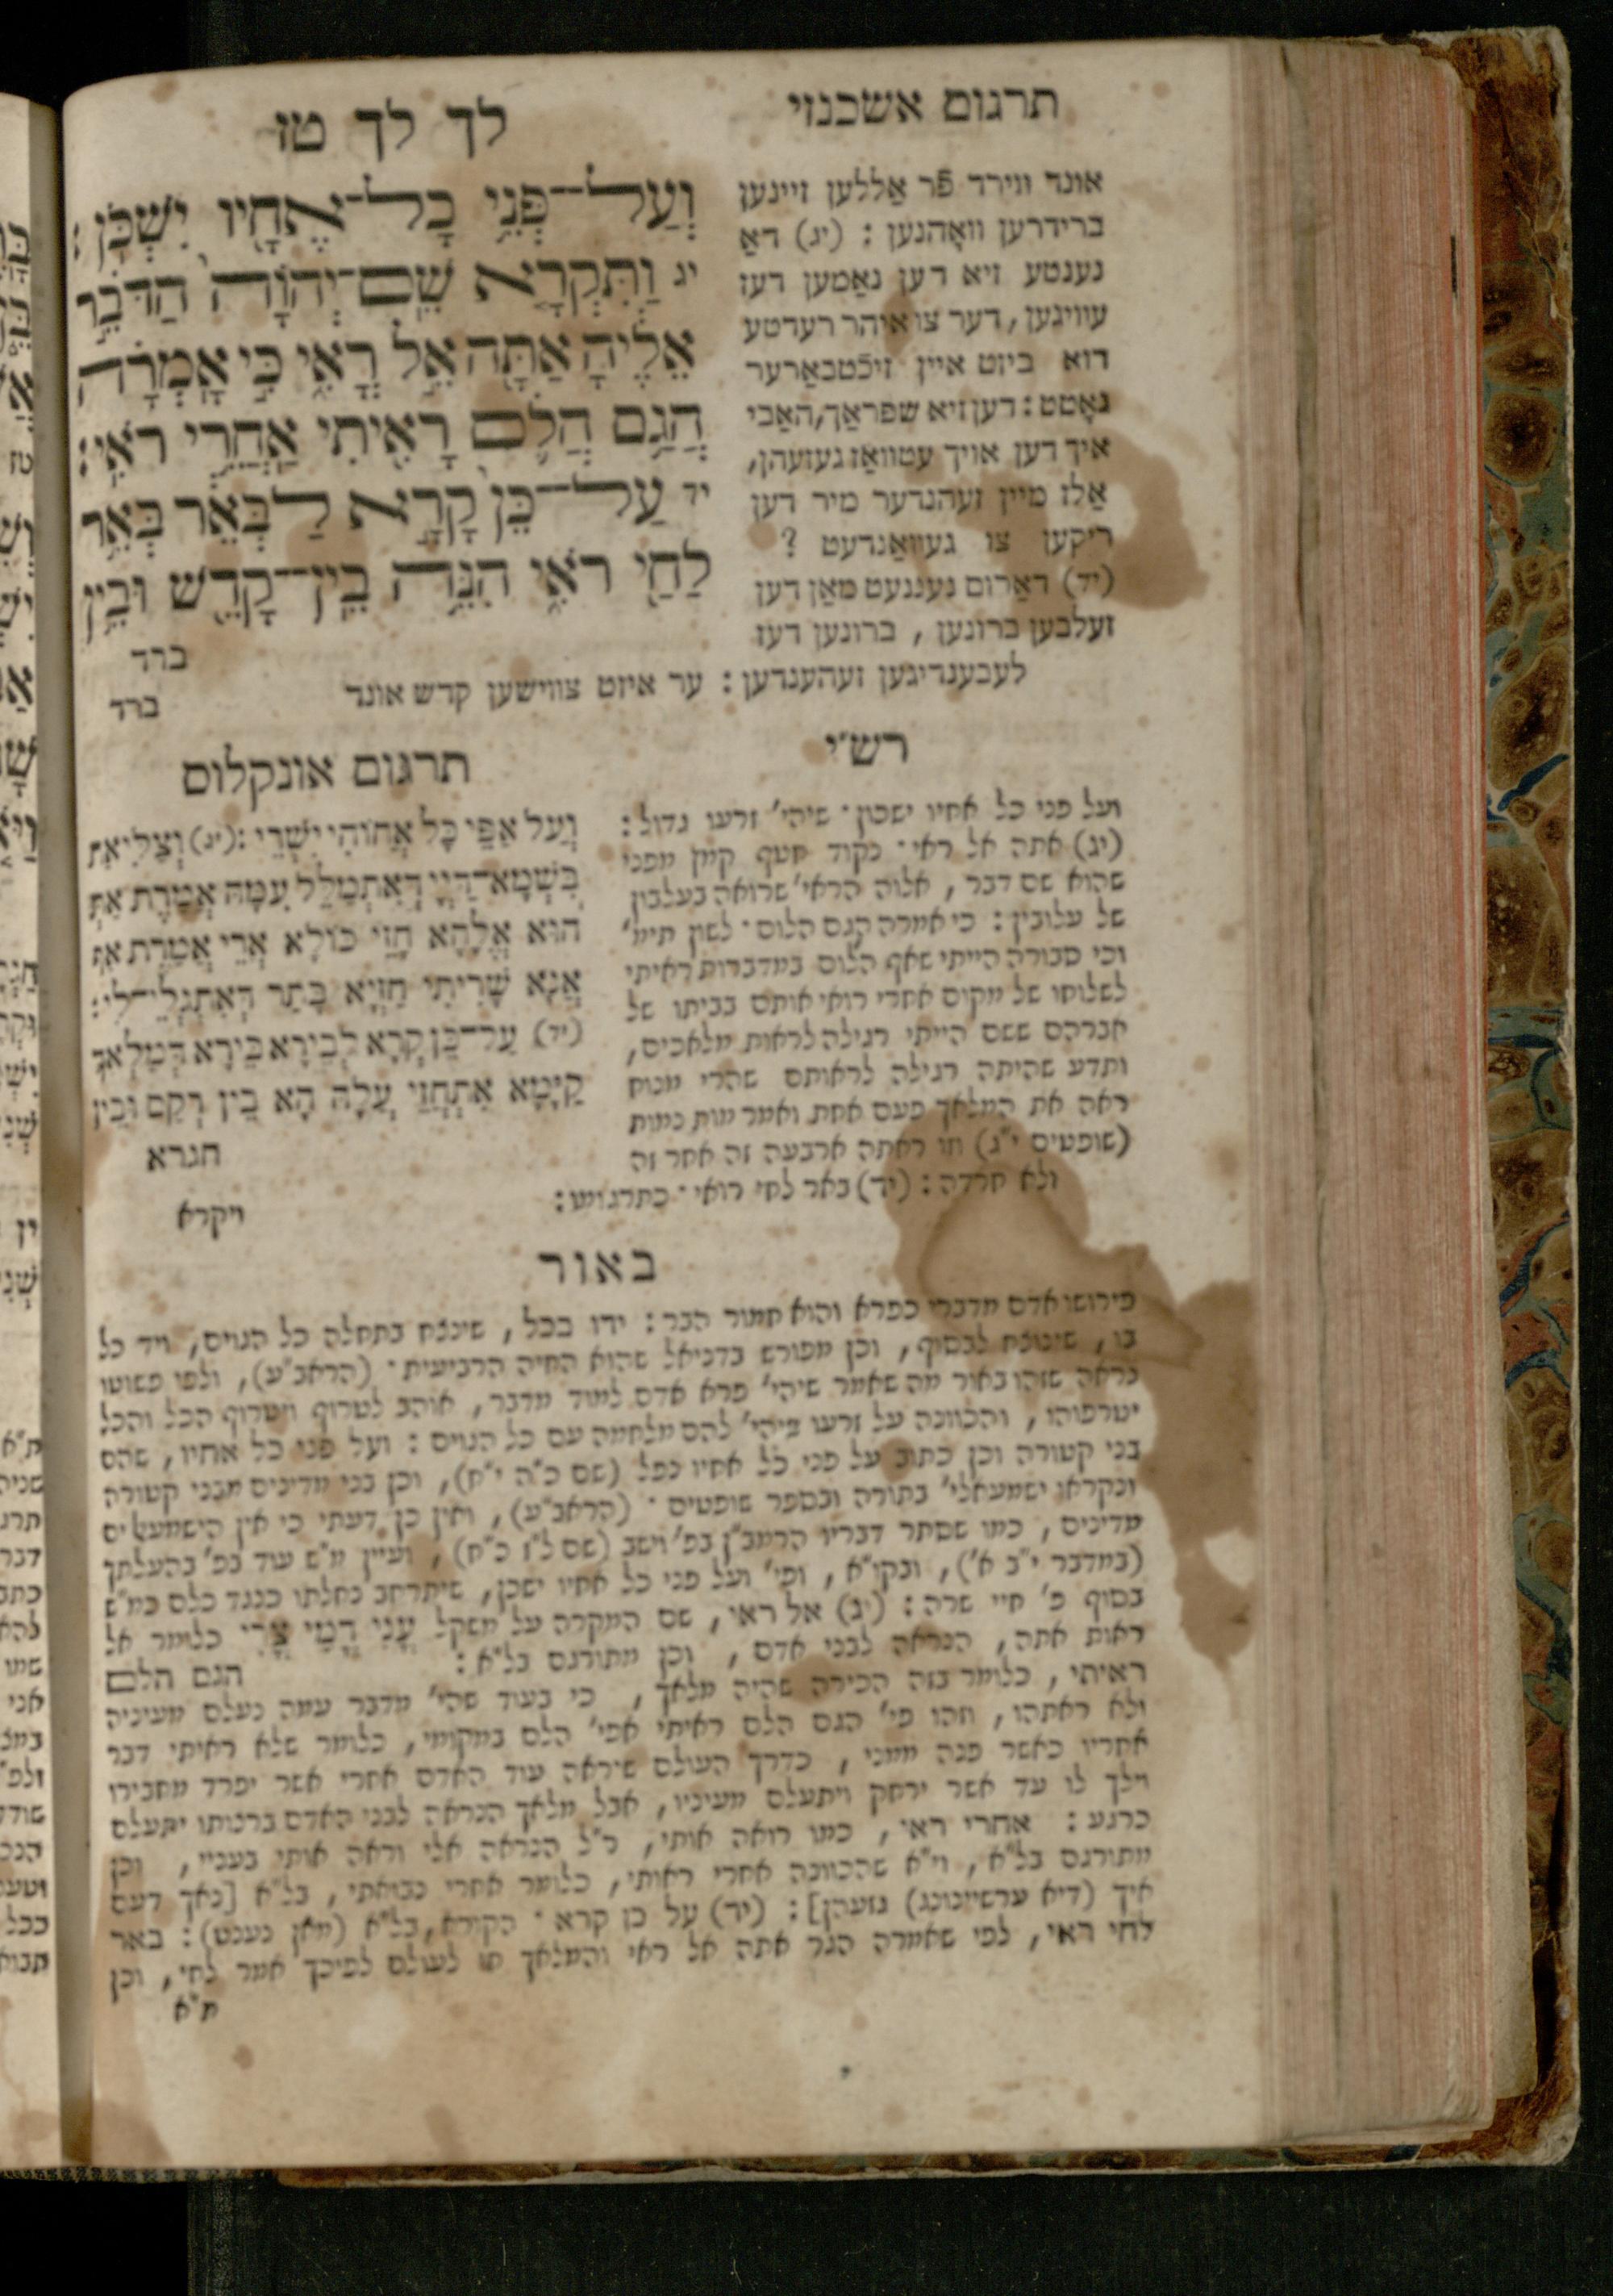 לך לך טז
וְעַל־פְּנֵ֥י כָל־אֶחָ֖יו יִשְׁכֹּֽן׃
יג וַתִּקְרָ֤א שֵׁם־יְהוָֹה֙ הַדֹּבֵ֣ר
אֵלֶ֔יהָ אַתָּ֖ה אֵ֣ל רֳאִ֑י כִּ֣י אָֽמְרָ֗ה
הֲגַ֥ם הֲלֹ֛ם רָאִ֖יתִי אַחֲרֵ֥י רֹאִֽי׃
יד עַל־כֵּן֙ קָרָ֣א לַבְּאֵ֔ר בְּאֵ֥ר
לַחַ֖י רֹאִ֑י הִנֵּ֥ה בֵֽין־קָדֵ֖שׁ וּבֵ֥ין
ברד
תרגום אשכנזי
אונד ווירד פֿר אַללען זיינען
ברידרען וואָהנען : (יג) דאַ
נענטע זיא דען נאָמען דעז
עוויגען, דער צו איהר רעדטע
דוא ביזט איין זיכֿטבאַרער
גאָטט : דען זיא שפראַך, האַבי
איך דען אויך עטוואַז געזעהן,
אַלז מיין זעהנדער מיר דען
ריקען צו געוואַנדעט ?
(יד) דאַרום נעננעט מאַן דען
זעלבען ברונען , ברונען דעז
לעבענדיגען זעהענדען : ער איזט צווישען קדש אונד
ברד
רש״י
ועל פני כל אחיו ישכון ־ שיהי׳ זרעו גדול :
(יג) אתה אל ראי ־ נקוד חטף קמץ מפני
שהוא שם דבר , אלוה הראי׳ שרואה בעלבון
של עלובין : כי אמרה הגם הלום ־ לשון תימ׳
וכי סבורה הייתי שאף הלום במדברות ראיתי
לשלוחו של מקום אחרי רואי אותם בביתו של
אברהם ששם הייתי רגילה לראות מלאכים,
ותדע שהיתה רגילה לראותם שהרי מנוח
ראה את המלאך פעם אחת ואמר מות נמות
(שופטים י״ג) וזו ראתה ארבעה זה אחר זה
ולא חרדה : (יד) באר לחי רואי ־ כתרגומו :
תרגום אונקלוס
וְעַל אַפֵּי כָּל אֲחוֹהִי יִשְׁרֵי : (יג) וְצַלִיאַת
בִּשְׁמָא־דַיְיָ דְּאִתְמַלֵּל עִמָּהּ אֲמֶרֶת אַתְּ
הוּא אֱלָהָא חָזֵי כוֹלָּא אֲרֵי אֲמֶרֶת אַף
אֲנָא שָׁרֵיתִי חַזְיָא בָּתַר דְּאִתְגְּלִי־לִי :
(יד) עַל־כֵּן קְרָא לְבֵירָא בֵּירָא דְּמַלְאַךְ
קַיָּמָא אִתְחֲזֵי עֲלַהּ הָא בֵין רְקַם וּבֵין
חגרא
ויקרא
באור
פירושו אדם מדברי כפרא והוא חמור הבר : ידו בכל , שינצח בתחלה כל הגוים, ויד כל
בו , שינוצח לבסוף , וכן מפורש בדניאל שהוא החיה הרביעית ־ (הראב״ע), ולפי פשוטו
נראה שזהו באור מה שאמר שיהי׳ פרא אדם למוד מדבר , אוהב לטרוף ויטרוף הכל והכל
יטרפוהו , והכוונה על זרעו שיהי׳ להם מלחמה עם כל הגוים : ועל פני כל אחיו , שהם
בני קטורה וכן כתוב על פני כל אחיו נפל (שם כ״ה י״ח), וכן בני מדינים מבני קטורה
ונקראו ישמעאלי׳ בתורה ובספר שופטים ־ (הראב״ע), ואין כן דעתי כי אין הישמעאלים
מדינים , כמו שסתר דבריו הרמב״ן בפ׳ וישב (שם ל״ז כ״ח) , ועיין מ״ש עוד בפ׳ בהעלתך
(במדבר י״ב א׳), ובקו״א , ופי׳ ועל פני כל אחיו ישכן, שיתרחב נחלתו כנגד כלם כמ״ש
בסוף פ׳ חיי שרה : (יג) אל ראי , שם המקרה על משקל עֳנִי דֳמִי צֳרִי כלומר אל
ראות אתה, הנראה לבני אדם , וכן מתורגם בל״א : הגם הלם
ראיתי , כלומר בזה הכירה שהיה מלאך , כי בעוד שהי׳ מדבר עמה נעלם מעיניה
ולא ראתהו , וזהו פי׳ הגם הלם ראיתי אפי׳ הלם במקומי, כלומר שלא ראיתי דבר
אחריו כאשר פנה ממני , כדרך העולם שיראה עוד האדם אחרי אשר יפרד מחבירו
וילך לו עד אשר ירחק ויתעלם מעיניו, אבל מלאך הנראה לבני האדם ברצותו יתעלם
כרגע : אחרי ראי , כמו רואה אותי , ר״ל הנראה אלי וראה אותי בעניי , וכן
מתורגם בל״א , וי״א שהכוונה אחרי ראותי, כלומר אחרי נבואתי , בל״א [נאך דעם
איך (דיא ערשיינונג) געזעהן] : (יד) על כן קרא ־ הקורא, בל״א (מאן נענט) : באר
לחי ראי , לפי שאמרה הגר אתה אל ראי והמלאך חי לעולם לפיכך אמר לחי , וכן
ת״א